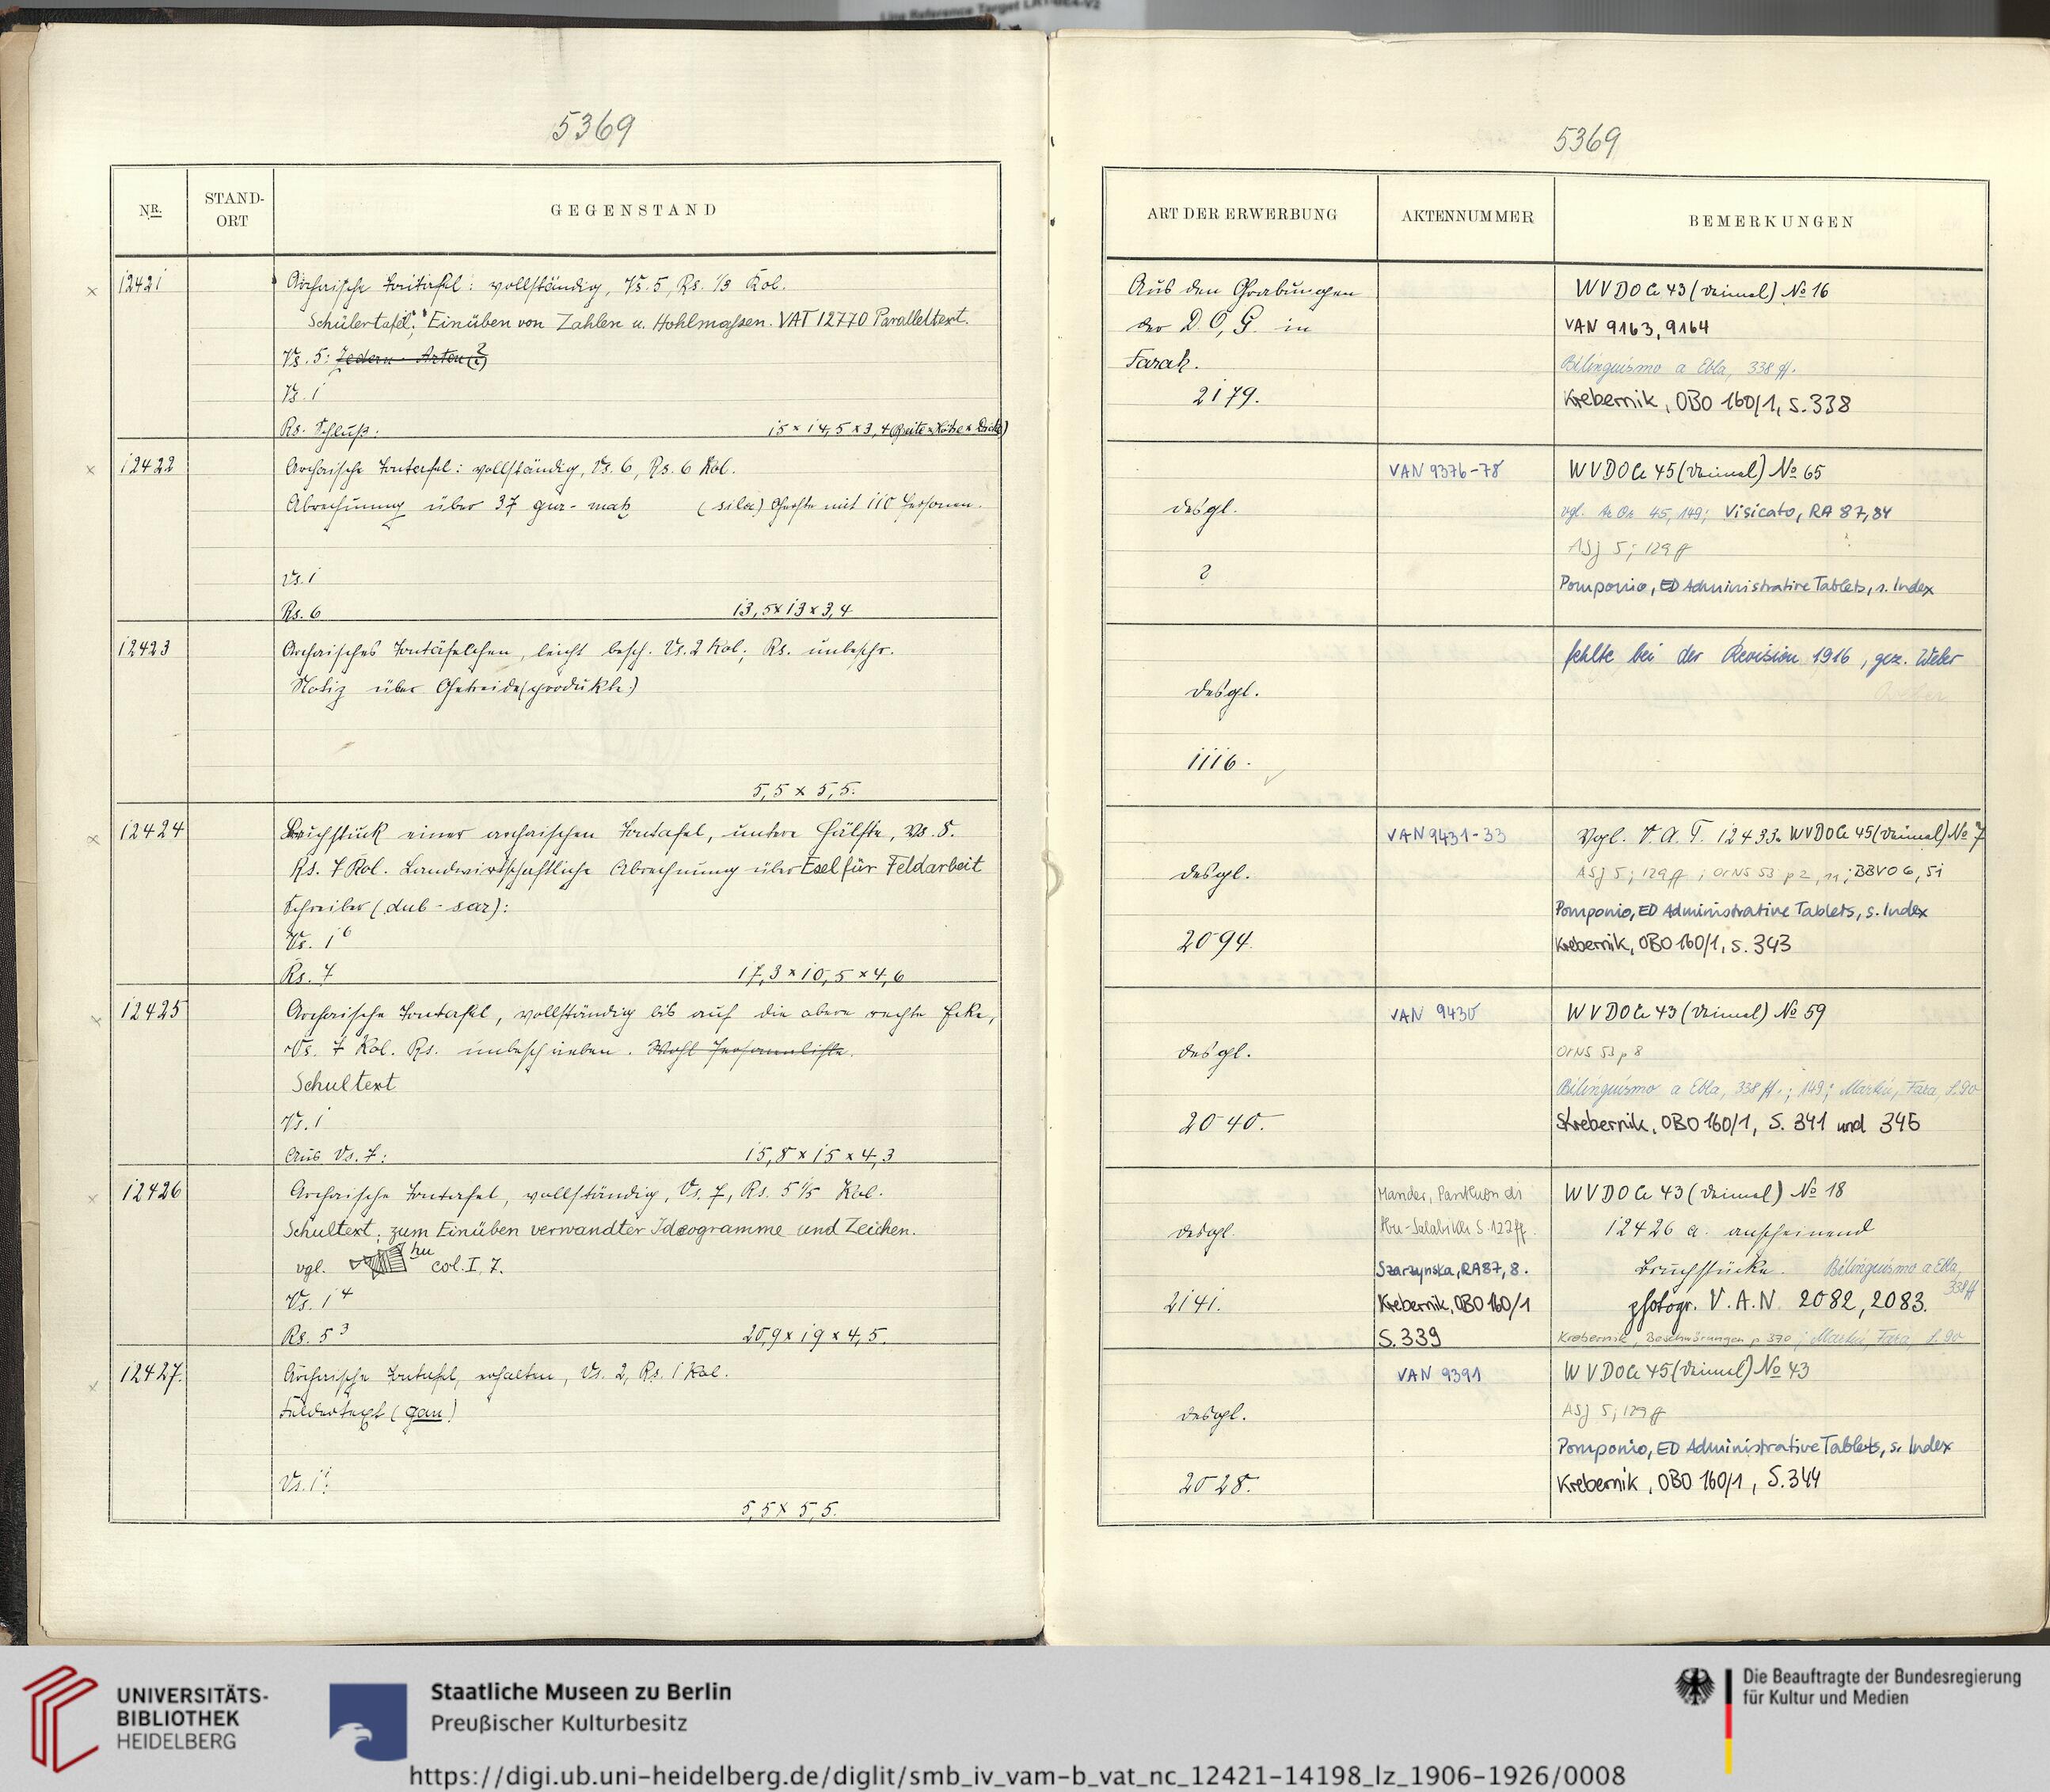 Line Reference Target
5369
NR.
STAND-
ORT
GEGENSTAND
12421
Archaische Tontafel: vollständig, Vs. 5, Rs. 1/3 Kol.
Schülertafel; Einüben von Zahlen u. Hohlmassen. VAT 12770 Paralleltext.
Vs. 5: Zedern-Arten(?)
Vs. 1
Rs. Schluß: 15 × 14,5 × 3,4 (Breite × Höhe × Dicke)
12422
Archaische Tontafel: vollständig, Vs. 6, Rs. 6 Kol.
Abrechnung über 37 gur-maḫ (sila) Gerste mit 110 Personen.
Vs. 1
Rs. 6 13,5 × 13 × 3,4
12423
Archaisches Tontäfelchen, leicht besch. Vs. 2 Kol; Rs. unbeschr.
Notiz über Getreide(produkte)
5,5 × 5,5.
12424
Bruchstück einer archaischen Tontafel, untere Hälfte, Vs. 8.
Rs. 7 Kol. Landwirtschaftliche Abrechnung über Esel für Feldarbeit
Schreiber (dub-sar):
Vs. 1 6
Rs. 7 17,3 × 10,5 × 4,6
12425
Archaische Tontafel, vollständig bis auf die obere rechte Ecke,
Vs. 7 Kol. Rs. unbeschrieben. Wohl Personenliste.
Schultext
Vs. 1
Aus Vs. 7: 15,8 × 15 × 4,3
12426
Archaische Tontafel, vollständig, Vs. 7, Rs. 5 1/5 Kol.
Schultext, zum Einüben verwandter Ideogramme und Zeichen.
vgl. hu col. I, 7.
Vs. 1 4
Rs. 5 3 20,9 × 19 × 4,5.
12427.
Archaische Tontafel, erhalten, Vs. 2, Rs. 1 Kol.
Feldertext (gan)
Vs. 1:
5,5 × 5,5.
5369
ART DER ERWERBUNG
AKTENNUMMER
BEMERKUNGEN
Aus den Grabungen
der D.O.G. in
Farah.
2179.
WVDOG 43 (Deimel) No 16
VAN 9163, 9164
Bilinguismo a Ebla, 338 ff.
Krebernik, OBO 160/1, S. 338
desgl.
?
VAN 9376-78
WVDOG 45 (Deimel) No 65
vgl. Ar Or 45, 149; Visicato, RA 87, 84
ASJ 5; 129 ff
Pomponio, ED Administrative Tablets, s. Index
desgl.
1116.
fehlte bei der Revision 1916, gez. Weber
desgl.
2094.
VAN 9431-33
Vgl. V.A.T. 12433. WVDOG 45 (Deimel) No 7
ASJ 5; 129 ff; OrNS 53 p 2, 11; BBVO 6, 51
Pomponio, ED Administrative Tablets, s. Index
Krebernik, OBO 160/1, S. 343
desgl.
2040.
VAN 9430
WVDOG 43 (Deimel) No 59
OrNS 53 p 8
Bilinguismo a Ebla, 338 ff.; 149; Fara, S. 90
Krebernik, OBO 160/1, S. 341 und 345
desgl.
2141.
Mander, Pantheon di
Abu-Salabikh S. 122 ff.
Szarzynska, RA 87, 8.
Krebernik, OBO 160/1
S. 339
WVDOG 43 (Deimel) No 18
12426 a. anscheinend
Bruchstücke. Bilinguismo a Ebla,
338 ff
photogr. V.A.N. 2082, 2083.
Krebernik, Beschwörungen p 370; Fara, S. 90
desgl.
2028.
VAN 9391
WVDOG 45 (Deimel) No 43
ASJ 5; 129 ff
Pomponio, ED Administrative Tablets, s. Index
Krebernik, OBO 160/1, S. 344
UNIVERSITÄTS-
BIBLIOTHEK
HEIDELBERG
Staatliche Museen zu Berlin
Preußischer Kulturbesitz
Die Beauftragte der Bundesregierung
für Kultur und Medien
https://digi.ub.uni-heidelberg.de/diglit/smb_iv_vam-b_vat_nc_12421-14198_lz_1906-1926/0008